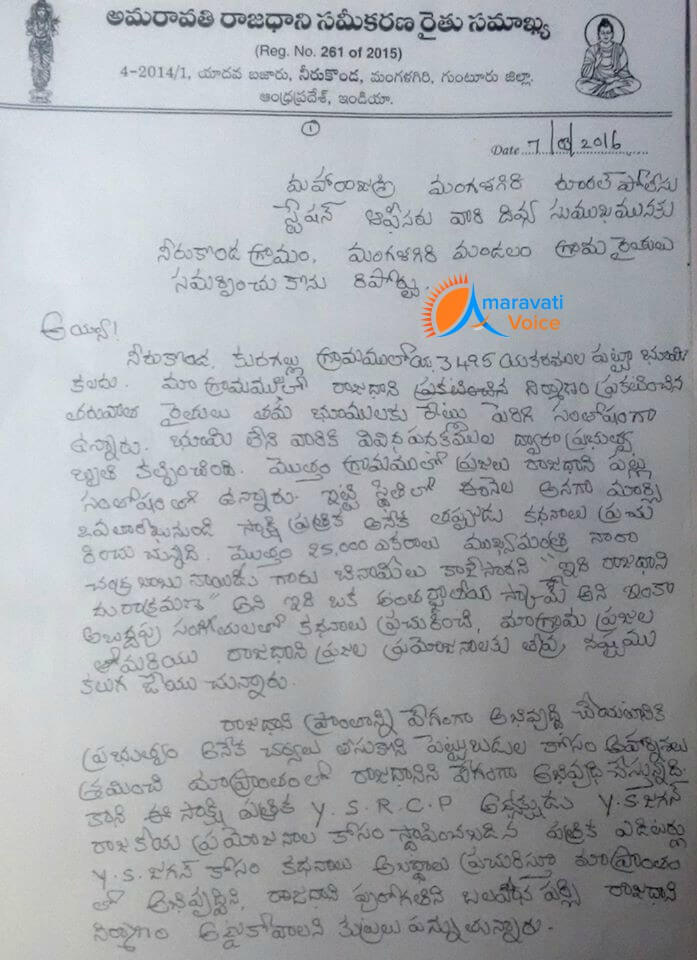 అమరావతి రాజధాని సమీకరణ రైతు సమాఖ్య
(Reg. No. 261 of 2015)
4-2014/1, యాదవ బజారు, నీరుకొండ, మంగళగిరి, గుంటూరు జిల్లా.
ఆంధ్రప్రదేశ్, ఇండియా.
1
Date 7/3/2016
మహారాజశ్రీ మంగళగిరి రూరల్ పోలీసు
స్టేషన్ ఆఫీసరు వారి దివ్య సుముఖమునకు
నీరుకొండ గ్రామం, మంగళగిరి మండలం గ్రామ రైతులు
సమర్పించు కొను రిపోర్టు.
amaravati
Voice
అయ్యా!
నీరుకొండ, కురగల్లు గ్రామములోయ 3495 యకరముల పట్టా భూమి
కలదు. మా గ్రామములో రాజధాని ప్రకటించిన నిర్మాణం ప్రకటించిన
తరువాత రైతులు తమ భూములకు రేట్లు పెరిగి సంతోషంగా
ఉన్నారు. భూమి లేని వారికి వివిధ పథకముల ద్వారా ప్రభుత్వ
భృతి కల్పించింది. మొత్తం గ్రామములో ప్రజలు రాజధాని పట్ల
సంతోషం తో ఉన్నారు. ఇట్టి స్థితిలో ఈనెల అనగా మార్చి
2వ తారీఖునుండి సాక్షి పత్రిక అనేక తప్పుడు కథనాలు ప్రచు
రించు చున్నది. మొత్తం 25,000 ఎకరాలు ముఖ్యమంత్రి నారా
చంద్రబాబు నాయుడు గారు బినామీలు కాజేసారని "ఇది రాజధాని
దురాక్రమణ" అని ఇది ఒక అంతర్జాతీయ స్కామ్ అని ఇంకా
అబద్దపు సంగతులతో కథనాలు ప్రచురించి, మా గ్రామ ప్రజల
తోమరియు రాజధాని ప్రజల ప్రయోజనాలకు తీవ్ర నష్టము
కలుగ జేయు చున్నారు.
రాజధాని ప్రాంతాన్ని వేగంగా అభివృద్ధి చేయటానికి
ప్రభుత్వం అనేక చర్యలు తీసుకొని పెట్టుబడుల కోసం అహర్నిశలు
శ్రమించి మాప్రాంతంలో రాజధానిని వేగంగా అభివృద్ధి చేస్తున్నది.
కాని ఈ సాక్షి పత్రిక Y.S.R.C.P అధ్యక్షుడు Y.S.జగన్
రాజకీయ ప్రయోజనాల కోసం స్థాపించబడిన పత్రిక ఎడిటర్లు
Y.S.జగన్ కోసం కథనాలు అబద్ధాలు ప్రచురిస్తూ మాప్రాంతం
తో అభివృద్ధిని, రాజధాని పురోగతిని బలహీన పర్చి రాజధాని
నిర్మాణం అడ్డుకోవాలని కుట్రలు పన్నుతున్నారు.